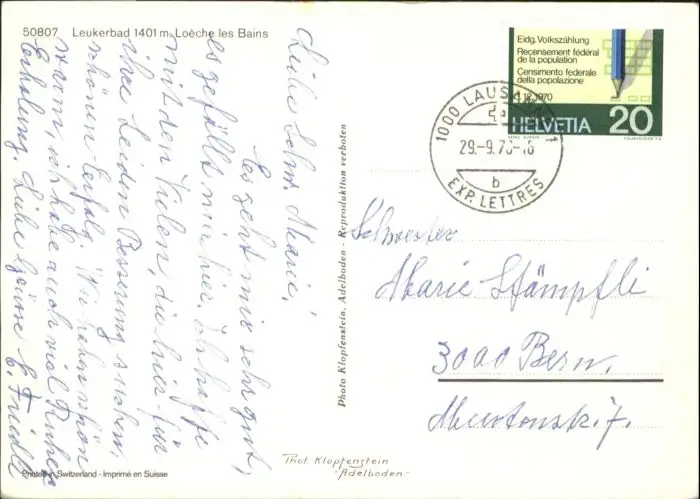 50807 Leukerbad 1401 m, Loèche les Bains
Liebe Schw. Marie,
Es geht mir sehr gut,
es gefällt mir hier. Ich hoffe
mit den Vielen, die hier für
ihre Leiden Besserung suchen,
schönen Erfolg. Wir haben schön
warm, ich habe auch viel Ruhe
Erholung. Liebe Grüsse E. Friedli
Printed in Switzerland - Imprimé en Suisse
Photo Klopfenstein, Adelboden - Reproduktion verboten
Phot. Klopfenstein
"Adelboden"
Eidg. Volkszählung
Recensement fédéral
de la population
Censimento federale
della popolazione
1.12.1970
HELVETIA 20
1000 LAUSANNE 1
29.-9.70-16
b
EXP. LETTRES
Schwester
Marie Stämpfli
3000 Bern.
Murtenstr. 7.